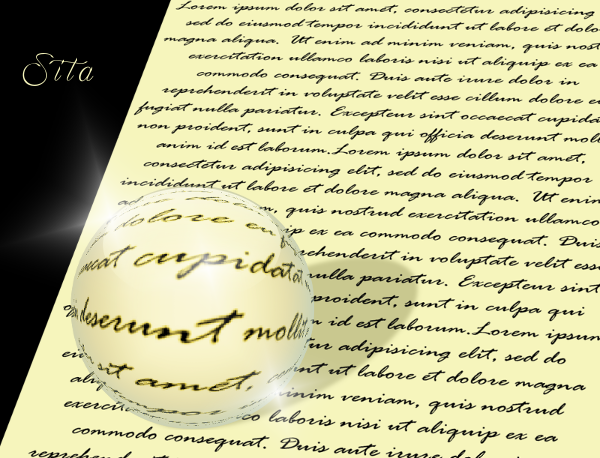 Sita
Lorem ipsum dolor sit amet, consectetur adipisicing
sed do eiusmod tempor incididunt ut labore et dolo
magna aliqua. Ut enim ad minim veniam, quis nost
exercitation ullamco laboris nisi ut aliquip ex ea
commodo consequat. Duis aute irure dolor in
reprehenderit in voluptate velit esse cillum dolore eu
fugiat nulla pariatur. Excepteur sint occaecat cupida
non proident, sunt in culpa qui officia deserunt moll
anim id est laborum.Lorem ipsum dolor sit amet,
consectetur adipisicing elit, sed do eiusmod tempor
incididunt ut labore et dolore magna aliqua. Ut enim
quis nostrud exercitation ullamco
dolore eu
ip ex ea commodo consequat. Duis
rehenderit in voluptate velit esse
aecat cupidatat
nulla pariatur. Excepteur sint
proident, sunt in culpa qui
deserunt mollit
id est laborum.Lorem ipsum
tur adipisicing elit, sed do
sit amet,
unt ut labore et dolore magna
minim veniam, quis nostrud
exercit
co laboris nisi ut aliquip ex ea
commodo consequat. Duis aute irure dolor